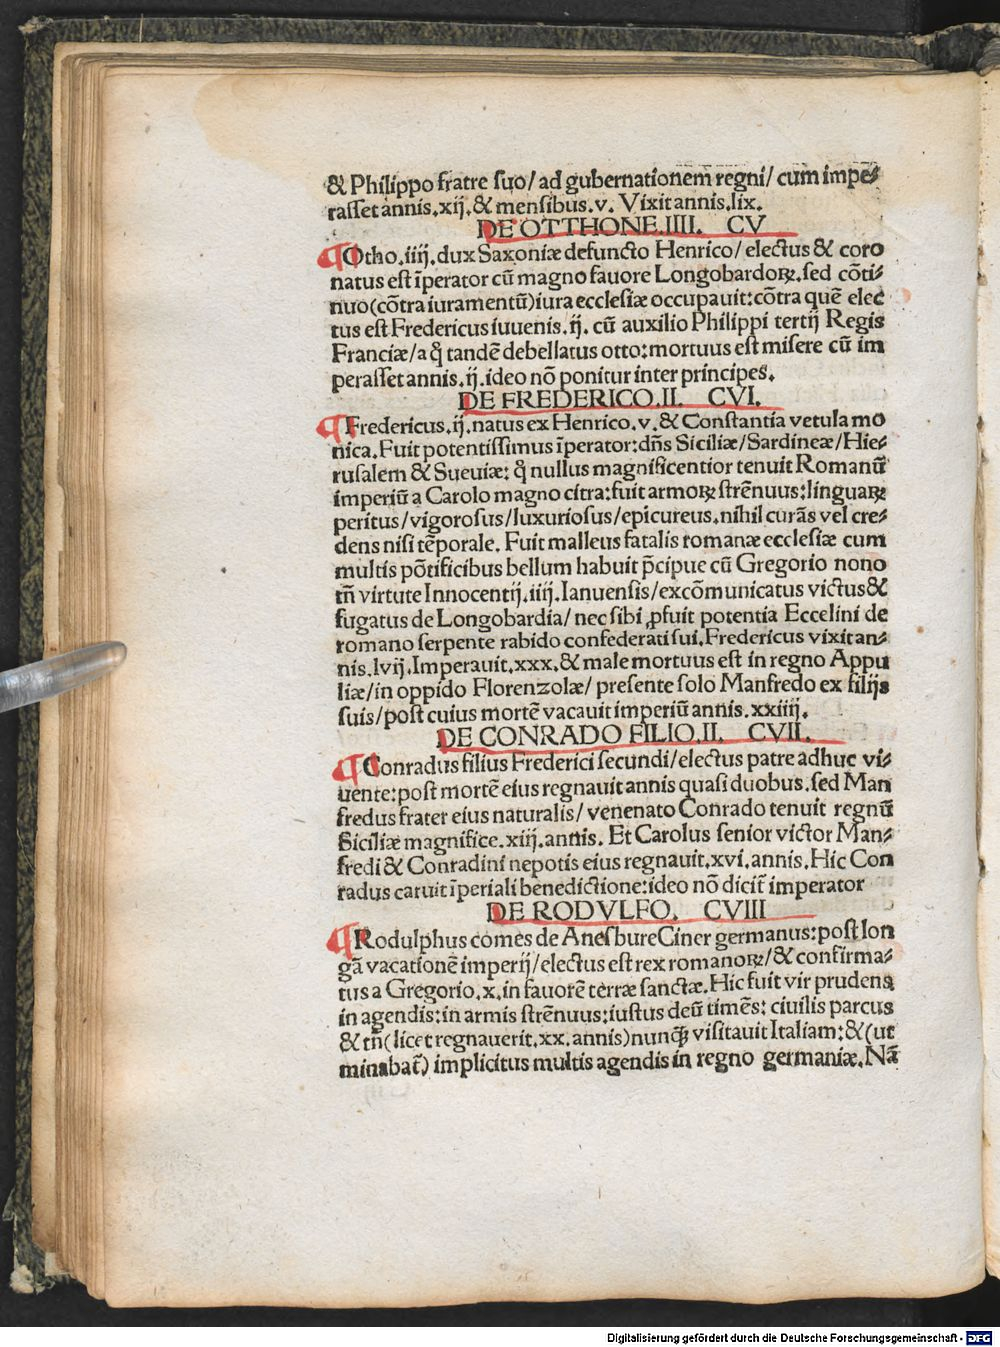 & Philippo fratre suo/ ad gubernationem regni/ cum impe⸗
rasset annis.xij.& mensibus.v. Vixit annis.lix.
DE OTTHONE.IIII. CV
¶Otho.iiij.dux Saxoniæ defuncto Henrico/ electus & coro
natus est īperator cū magno fauore Longobardoꝝ.sed cōti⸗
nuo(cōtra iuramentū)iura ecclesiæ occupauit:cōtra quē elec
tus est Fredericus iuuenis.ij. cū auxilio Philippi tertij Regis
Franciæ/a q̊ tandē debellatus otto:mortuus est misere cū im
perasset annis.ij.ideo nō ponitur inter principes.
DE FREDERICO.II. CVI.
¶Fredericus.ij.natus ex Henrico.v.& Constantia vetula mo
nica.Fuit potentissimus īperator:dn̄s Siciliæ/Sardineæ/Hie⸗
rusalem & Sueuiæ: q̊ nullus magnificentior tenuit Romanū
imperiū a Carolo magno citra:fuit armoꝝ strēnuus:linguaꝝ
peritus/vigorosus/luxuriosus/epicureus.nihil curās vel cre⸗
dens nisi tēporale. Fuit malleus fatalis romanæ ecclesiæ cum
multis pōtificibus bellum habuit p̄cipue cū Gregorio nono
tn̄ virtute Innocentij.iiij.Ianuensis/excōmunicatus victus&
fugatus de Longobardia/ nec sibi ꝓfuit potentia Eccelini de
romano serpente rabido confederati sui.Fredericus vixit an⸗
nis.lvij.Imperauit.xxx.& male mortuus est in regno Appu
liæ/in oppido Florenzolæ/ presente solo Manfredo ex filijs
suis/post cuius mortē vacauit imperiū annis.xxiiij.
DE CONRADO FILIO.II. CVII.
¶Conradus filius Frederici secundi/electus patre adhuc vi⸗
uente:post mortē eius regnauit annis quasi duobus.sed Man
fredus frater eius naturalis/ venenato Conrado tenuit regnū
Siciliæ magnifice.xiij.annis. Et Carolus senior victor Man⸗
fredi & Conradini nepotis eius regnauit.xvi.annis.Hic Con
radus caruit īperiali benedictione:ideo nō dicit̄ imperator
DE RODVLFO. CVIII
¶Rodulphus comes de AnesbureCiner germanus:post lon
gā vacationē imperij/electus est rex romanoꝝ/& confirma⸗
tus a Gregorio.x.in fauorē terræ sanctæ.Hic fuit vir prudens
in agendis:in armis strēnuus:iustus deū timēs: ciuilis parcus
& tn̄(licet regnauerit.xx.annis)nunꝙ̄ visitauit Italiam:&(ut
minabat̄) implicitus multis agendis in regno germaniæ.Nā
Digitalisierung gefördert durch die Deutsche Forschungsgemeinschaft - DFG